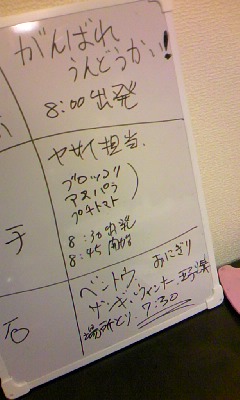 がんばれ
うんどうかい!
8:00 出発
ヤサイ担当.
ブロッコリ
アスパラ
プチトマト
8:30 出発
8:45 開始
ベントウ おにぎり
ザンギ・ウィンナー・野菜
場所とり 7:30
手
石